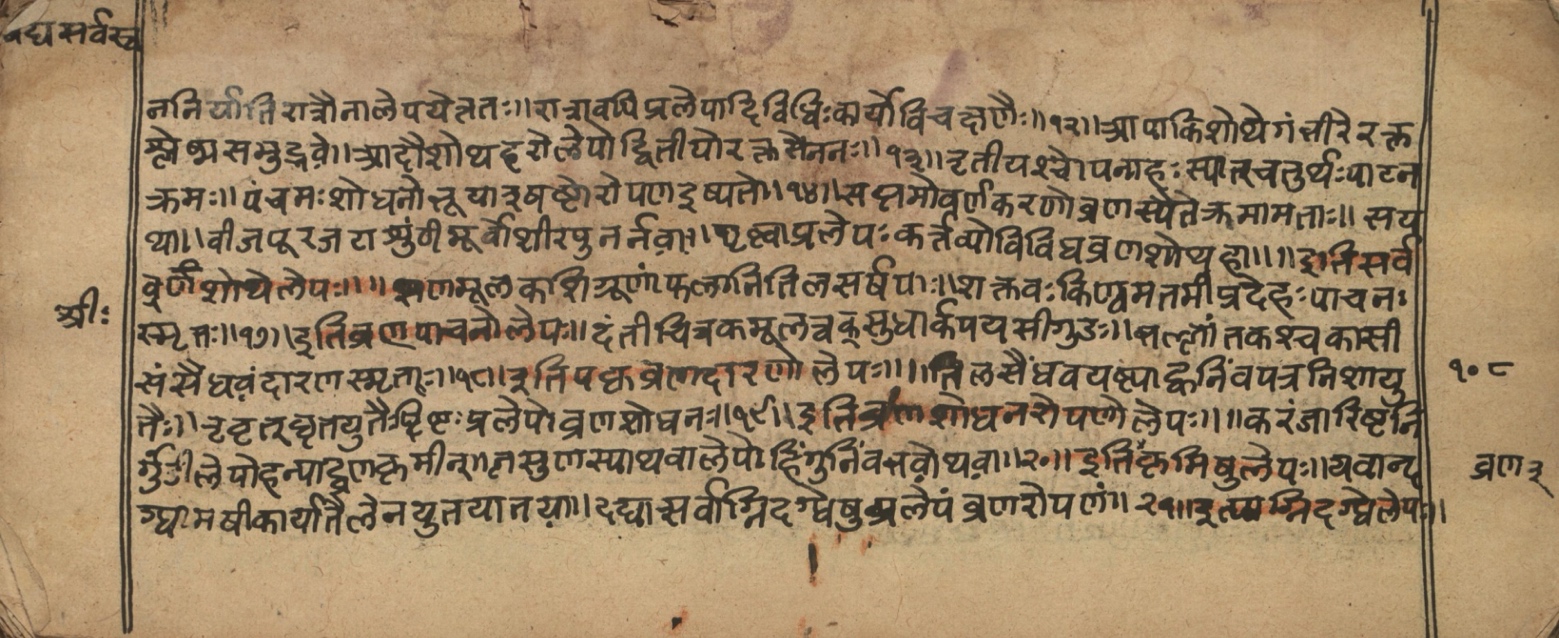 वैद्यसर्वस्व
ननिर्यातिरात्रौनालेपयेत्ततः॥रात्रावपिप्रलेपादिविधिःकार्योविचक्षणैः॥१२॥आपाकिशोथेगंभीरेरक्त
श्लेष्मसमुद्भवे॥आदौशोथहरोलेपोद्वितीयोरक्तसेननः॥१३॥तृतीयश्चोपनाहःस्यात्चतुर्थःपाटन
क्रमः॥पंचमःशोधनोभूयात्षष्टोरोपणइष्यते॥१४॥सप्तमोवर्णकरणोव्रणस्येतेक्रमामताः॥सय
था॥वीजपूरजटाशुंठीमूर्वोशीरपुनर्नवा॥घृष्ट्वाप्रलेपःकर्तव्योविविधव्रणशोथहा॥॥इतिसर्व
व्रणशोथेलेपः॥॥शणमूलकशिग्रूणांफलानितिलसर्षपाः॥शक्तवःकिण्वमतमीप्रदेहःपाचनः
श्रीः
स्मृतः॥१७॥इतिव्रणपाचनोलेपः॥दंतीचित्रकमूलत्वक्सुधार्कपयसीगुडः॥भल्लांतकश्चकासी
संसैधवंदारणस्मृतः॥१८॥इतिपक्वव्रणदारणोलेपः॥॥तिलसैंधवयष्ट्याह्वनिंवपत्रनिशायु
१०८
तैः॥तृवृत्घृतयुतैःपिष्टःप्रलेपोव्रणशोधनः॥१९॥इतिव्रणशोधनरोपणोलेपः॥॥करंजारिष्टनि
र्गुंडीलेपोहन्याद्व्रणकृमीन्॥लसुणस्याथवालेपोहिंगुनिंवभवोथवा॥२०॥इतिकृमिषुलेपः॥यवान्द
व्रण३
ग्ध्वामषीकार्यातैलेनयुतयातया॥दद्यात्सर्वाग्निदग्धेषुप्रलेपंव्रणरोपणं॥२१॥इत्यग्निदग्धेलेपः॥